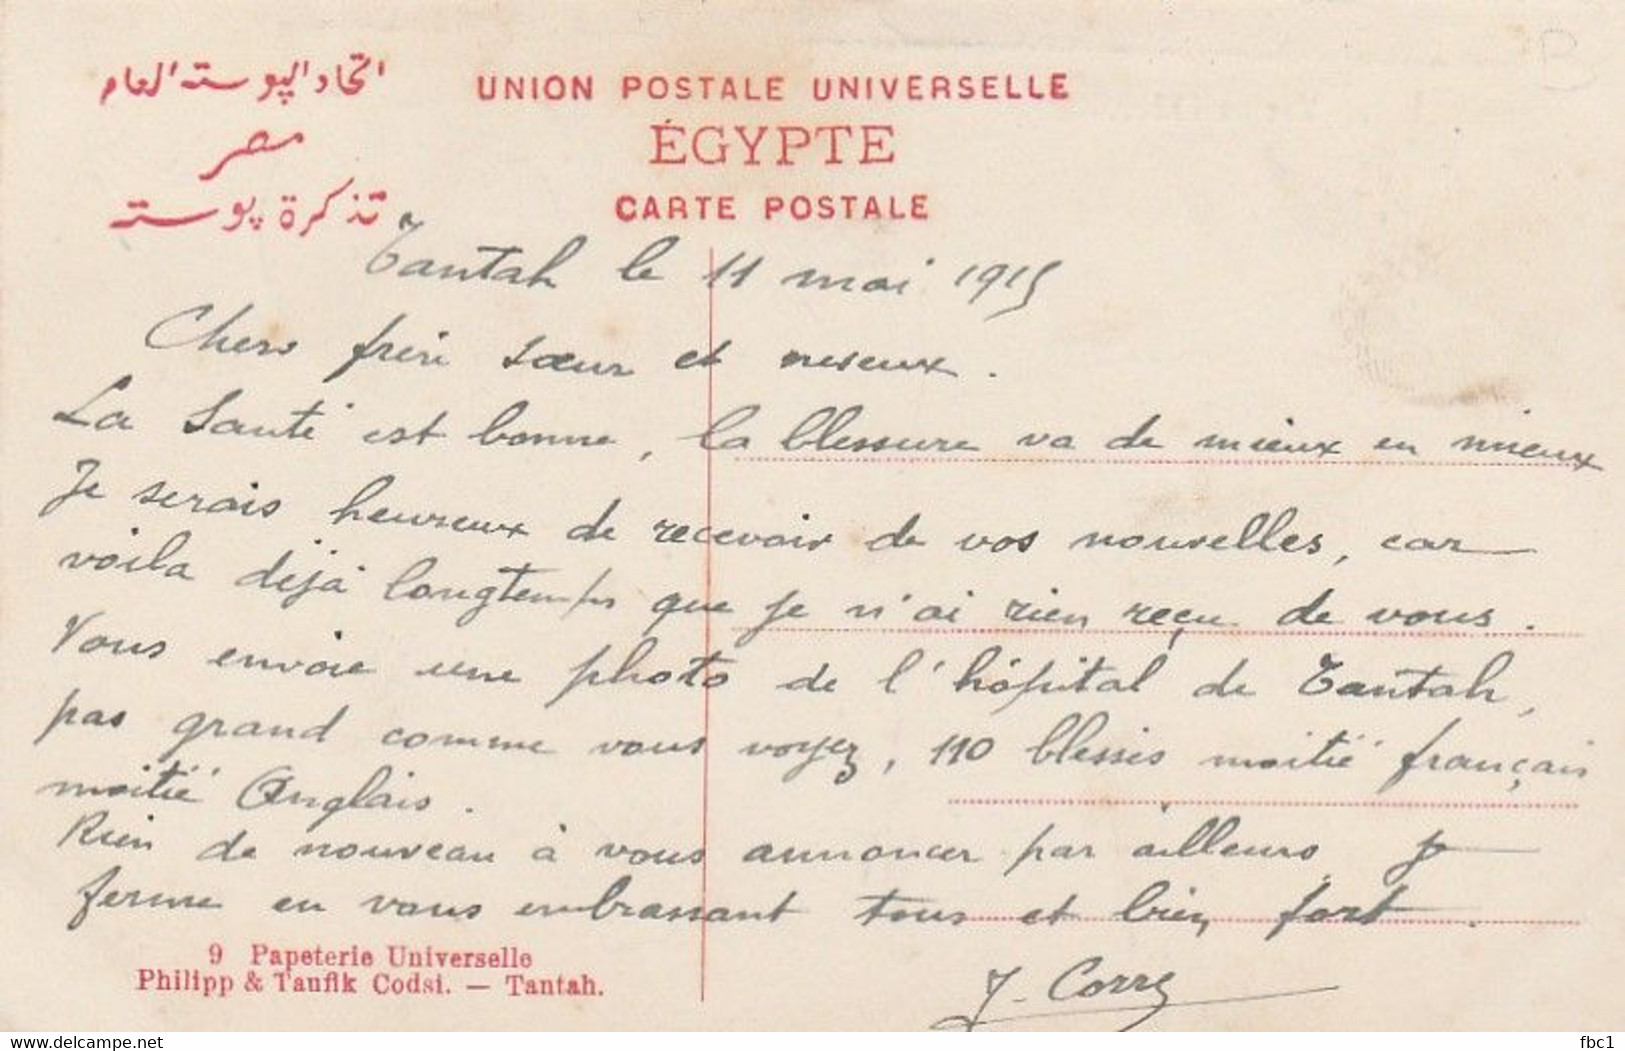 اتحاد البوسته العام
مصر
تذكرة پوسته
UNION POSTALE UNIVERSELLE
ÉGYPTE
CARTE POSTALE
Tantah le 11 mai 1915
Chers frère sœur et neveux.
La santé est bonne, la blessure va de mieux en mieux
Je serais heureux de recevoir de vos nouvelles, car
voila déjà longtemps que je n'ai rien reçu de vous.
Vous envoie une photo de l'hôpital de Tantah,
pas grand comme vous voyez, 110 blessés moitié français
moitié Anglais.
Rien de nouveau à vous annoncer par ailleurs. Je
ferme en vous embrassant tous et bien fort.
J. Corre
9 Papeterie Universelle
Philipp & Taufik Codsi. — Tantah.
delcampe.net
fbc1